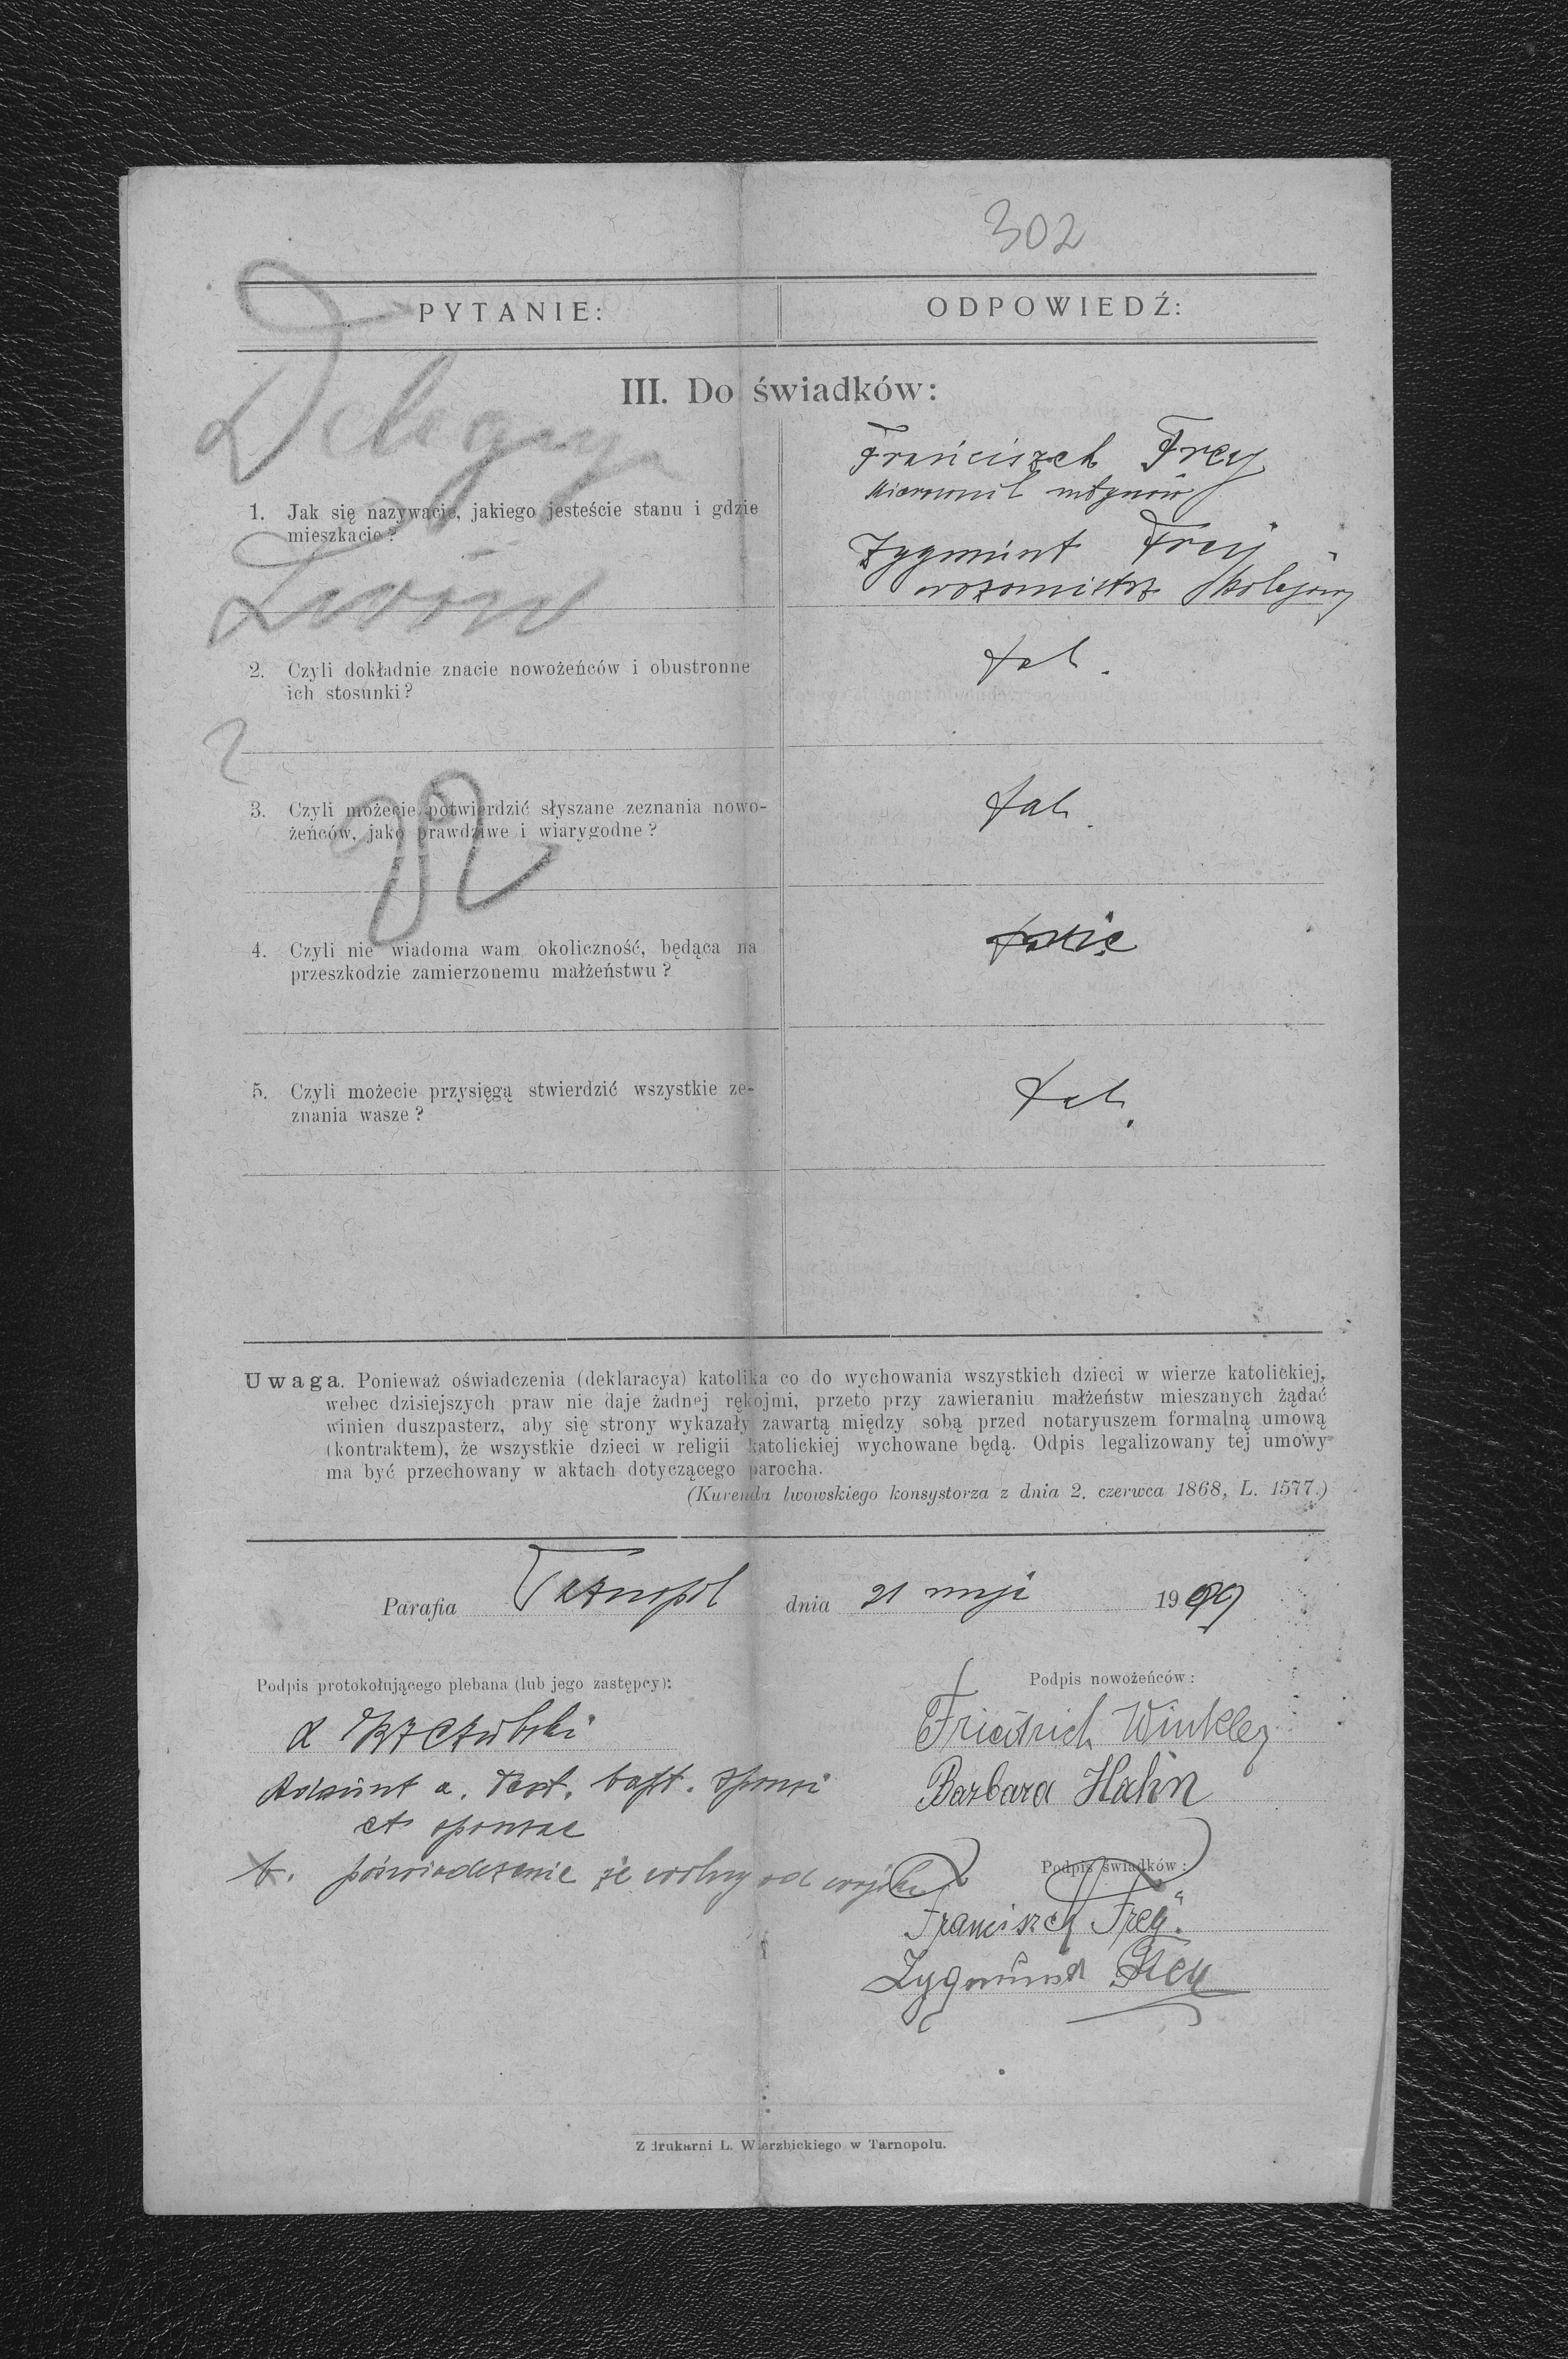 302
PYTANIE: ODPOWIEDŹ:
III. Do świadków:
Delegacya
Lwów
1. Jak się nazywacie, jakiego jesteście stanu i gdzie
mieszkacie?
Franciszek Frey
kierownik młynów
Zygmunt Frey
wozomistrz kolejowy
2. Czyli dokładnie znacie nowożeńców i obustronne
ich stosunki?
tak.
3. Czyli możecie potwierdzić słyszane zeznania nowo-
żeńców, jako prawdziwe i wiarygodne?
tak.
4. Czyli nie wiadoma wam okoliczność, będąca na
przeszkodzie zamierzonemu małżeństwu?
nie
5. Czyli możecie przysięgą stwierdzić wszystkie ze-
znania wasze?
tak.
Uwaga. Ponieważ oświadczenia (deklaracya) katolika co do wychowania wszystkich dzieci w wierze katolickiej,
wobec dzisiejszych praw nie daje żadnej rękojmi, przeto przy zawieraniu małżeństw mieszanych żądać
winien duszpasterz, aby się strony wykazały zawartą między sobą przed notaryuszem formalną umową
(kontraktem), że wszystkie dzieci w religii katolickiej wychowane będą. Odpis legalizowany tej umowy
ma być przechowany w aktach dotyczącego parocha.
(Kurenda lwowskiego konsystorza z dnia 2. czerwca 1868, L. 1577.)
Parafia Tarnopol dnia 21 maja 1909
Podpis protokołującego plebana (lub jego zastępcy):
Podpis nowożeńców:
Friedrich Winkler
Barbara Hahn
Adsunt a. test. bapt. sponsi
et sponsae
b. poświadczenie że wolny od wojska
Podpis świadków:
Franciszek Frey.
Zygmund Frey
Z drukarni L. Wierzbickiego w Tarnopolu.